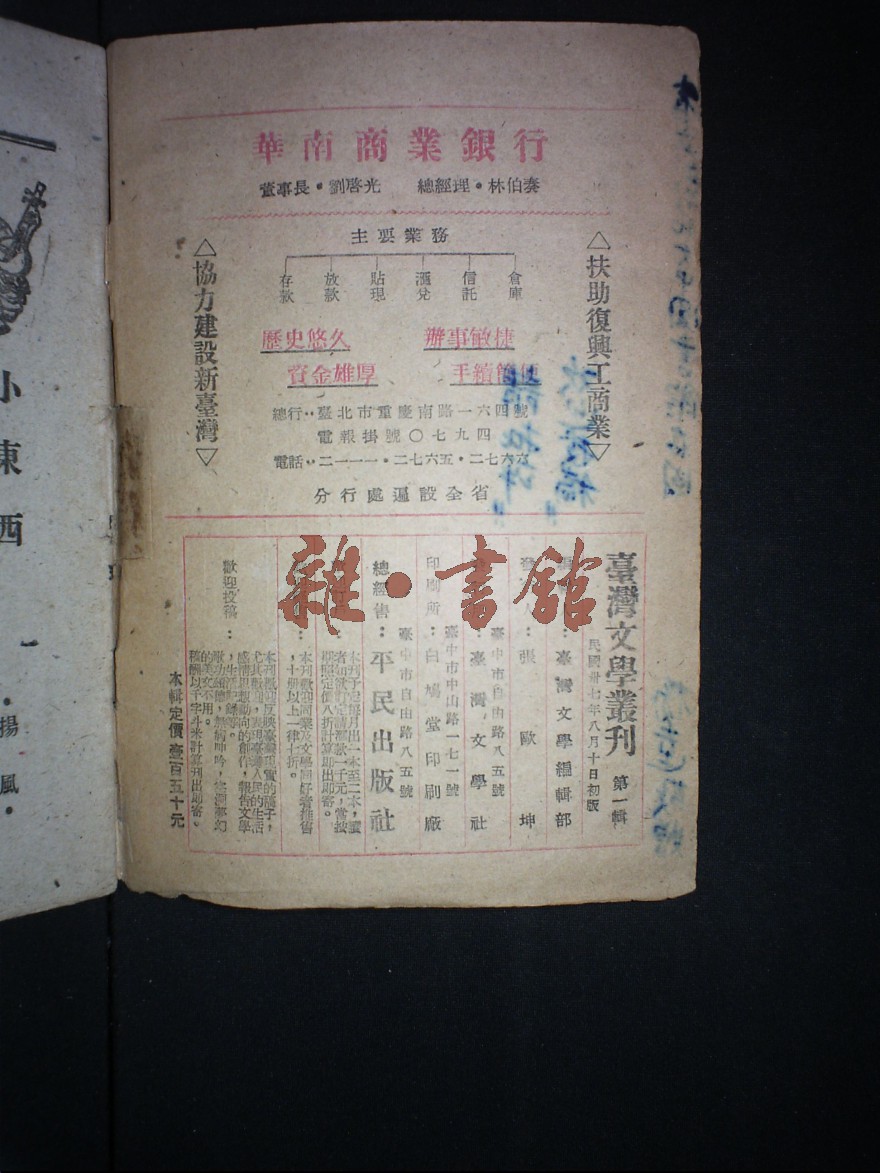 華南商業銀行
董事長・劉啓光　總經理・林伯奏
△扶助復興工商業▽
主要業務
倉庫
信託
滙兌
貼現
放款
存款
歷史悠久　辦事敏捷
資金雄厚　手續簡便
總行：臺北市重慶南路一六四號
電報掛號〇七九四
電話：二一一一・二七六五・二七六六
分行處遍設全省
△協力建設新臺灣▽
臺灣文學叢刊　第一輯
民國卅七年八月十日初版
：臺灣文學編輯部
發 人：張歐坤
臺中市自由路八五號
：臺灣文學社
臺中市中山路一七一號
印刷所：白鳩堂印刷廠
臺中市自由路八五號
總經售：平民出版社
本刊予定每月出一本至二本，
者如欲訂定請滙款一千元，當按
期照定價八折計算即出即寄。
本刊歡迎同業及文學同好者推售
，十册以上一律七折。
歡迎投稿：
本刊歡迎反映臺灣現實的稿子，
尤其 表現臺灣人民的生活
感情思想動向的創作，報告文學
，生活 等。
歌功頌德，無病呻吟，空洞夢幻
的美文不用。
稿酬以千字斗米計算刊出即寄。
本輯定價壹百五十元
雜・書館
小東西
・揚風・